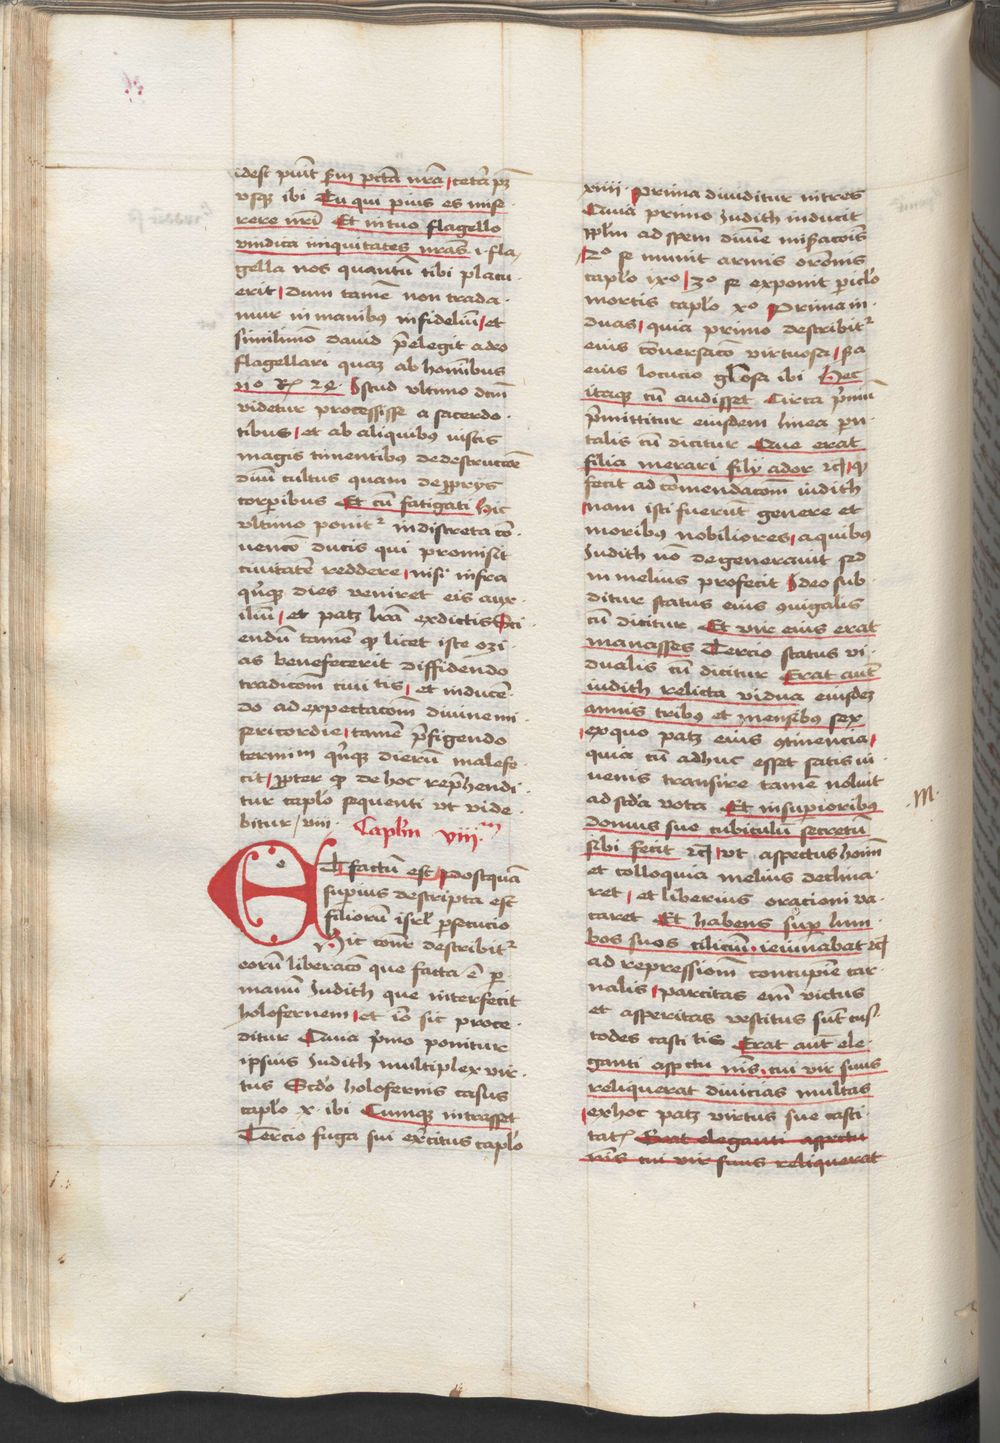 idest puīt scdm pctā nrā, cetā pꝫ
vsqꝫ ibi Tu qui pius es mise
rere nrī Et in tuo flagello
vindica iniquitates nras .i. fla,
gella nos quantū tibi placu
erit, dum tamē non trada
mur in manibꝰ infideliū, et
similimō dauid p̄elegit a deo
flagellari quaꝫ ab homībus
2º Rꝫ 24. Istud vltimo dcm̄
videtur processisse a sacerdo
tibus, et ab aliquibꝰ iustis
magis timentibꝰ de destructōe
diuī cultus quam de ꝓprijs
corporibus Et cū fatigati Hic
vltimo ponitᷣ indiscreta cō
uencō ducis qui promisit
ciuitatē reddere, nisi infra
qn̄qꝫ dies veniret eis aux
iliū, et patꝫ lrā ex dictis Sci
endū tamē ꝙ licet iste ozi
as benefecerit diffidendo
tradicōm ciui tis, et inducē
do ad expectacōm diuine mi
sericordie, tamē p̄figendo
termim qn̄qꝫ dierū malefe
cit, ꝓpter ꝙ de hoc rep̄hendi
tur caplo sequenti vt vide
bitur, viii. Caplm viii.m
Et factū est, Postquā
superius descripta est
filiorū isrl persecucio
Hic conr̄ describitᷣ
eorū liberacō que facta ē per
manū Judith que interfecit
holofernem, et iō sic proce
ditur Quia p̄mo ponitur
ipsius Judith multiplex vir
tus Scdo holofernis casus
caplo x. ibi Cumqꝫ intrasset
Tercio fuga sui exercitus caplo
xiiii. Prima diuiditur in tres
Quia primo Judith inducit
pplm ad spem diuīe misacōis
2º se munit armis orōnis
caplo ixº, 3º se exponit periclo
mortis caplo xº Prima in
duas, quia primo describitᷣ
eius cōuersacō virtuosa, scda
eius locucio gl̄osa ibi Hec
itaqꝫ cū audisset Circa p̄mū
p̄mittitur eiusdem linea pn
talis cū dicitur Que erat
filia merari filij ador ⁊c, qd
fecit ad cōmendacōm iudith
nam isti fuerūt genere et
moribus nobiliores, a quibꝰ
Judith nō degenerauit sed
in melius profecit Ideo sub
ditur status eius ꝯiugalis
cū dicitur Et vir eius erat
manasses Tercio status vi
dualis cū dicitur Erat autē
iudith relicta vidua eiusdeꝫ
annis tribus et mensibꝰ sex
ex quo patꝫ eius ꝯtinencia,
quia cū adhuc esset satis iu
uenis transire tamē noluit
ad scda vota Et in superioribꝰ
domus sue cubiculū secretū
sibi fecit ⁊c, vt aspectus hoīm
et colloquia melius declina
ret, et liberius oracioni va
caret Et habens super lum
bos suos ciliciū, ieiunabat ⁊c
ad repressionm concupie car
nalis, parcitas enī victus
et asperitas vestitus sūt cus
todes casti tis Erat autē ele
ganti aspectu nīs, cui vir suus
reliquerat diuicias multas
ex hoc patꝫ virtus sue casti
tatꝭ Erat eleganti aspectu
nīs cui vir suus reliquerat
.M.